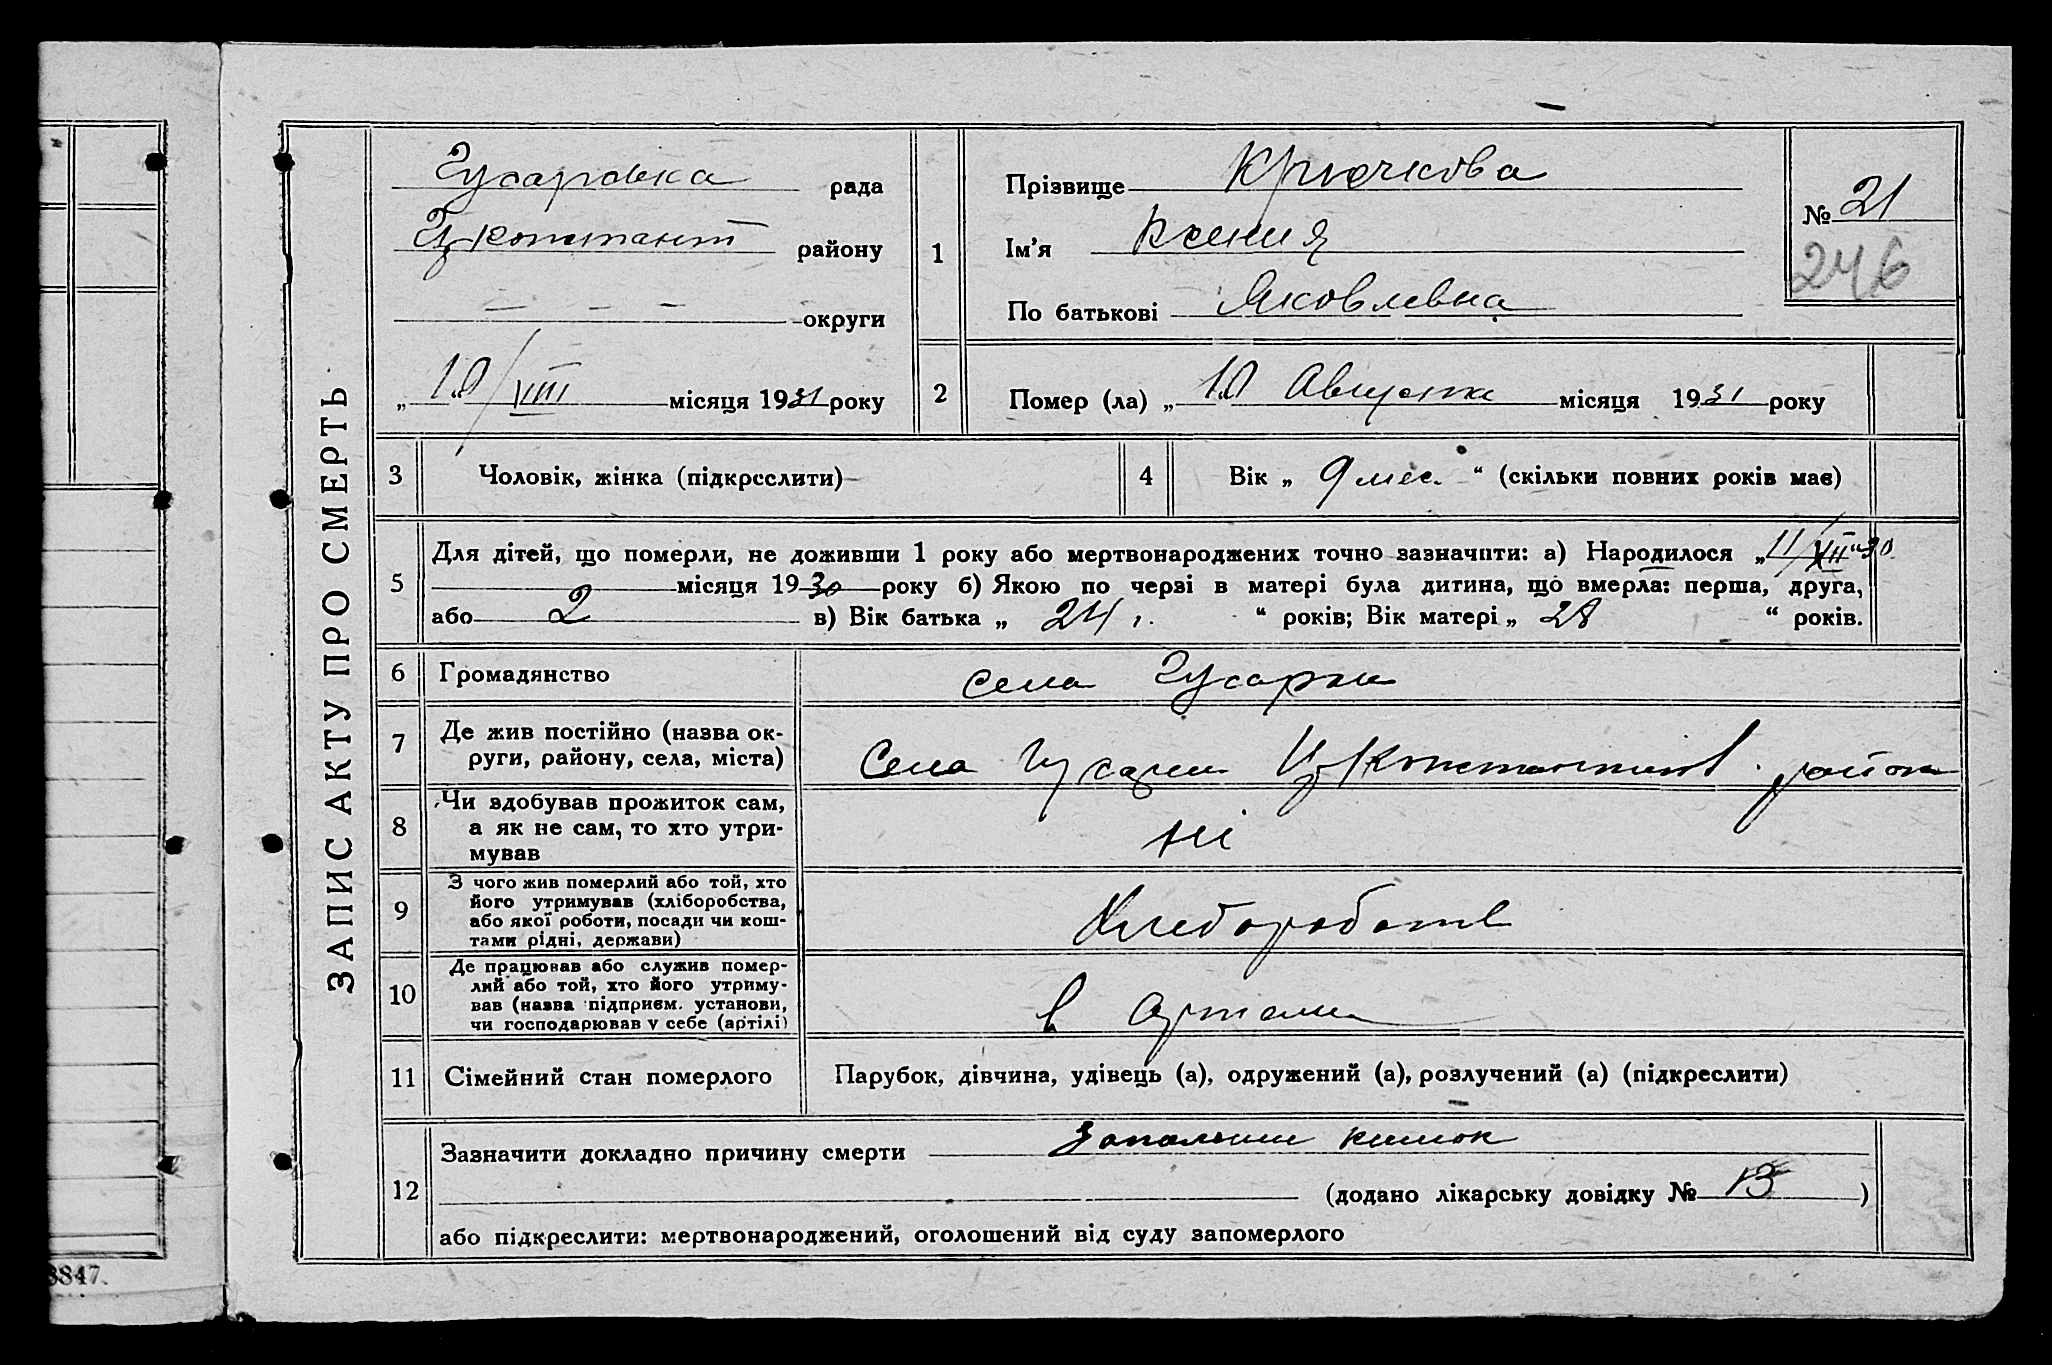 ЗАПИС АКТУ ПРО СМЕРТЬ
Гусаровка рада
Ц/Констант району
— — — округи
„10/VIII місяця 1931 року
1
Прізвище Крючкова
Ім’я Ксения
По батькові Яковлевна
№ 21
246
2
Помер (ла) „10 Августа місяця 1931 року
3
Чоловік, жінка (підкреслити)
4
Вік „ 9 мес. “ (скільки повних років має)
5
Для дітей, що померли, не доживши 1 року або мертвонароджених точно зазначити: а) Народилося „11/XII“30
місяця 1930 року б) Якою по черзі в матері була дитина, що вмерла: перша, друга,
або 2 в) Вік батька „ 24 г. “ років; Вік матері „ 28 “ років.
6
Громадянство
села Гусарки
7
Де жив постійно (назва ок-
руги, району, села, міста)
Села Гусарки Ц/Константинов. района
8
Чи здобував прожиток сам,
а як не сам, то хто утри-
мував
ні
9
З чого жив померлий або той, хто
його утримував (хліборобства,
або якої роботи, посади чи кош-
тами рідні, держави)
Хлеборобств
10
Де працював або служив помер-
лий або той, хто його утриму-
вав (назва підприєм. установи,
чи господарював у себе (артілі)
в Артели
11
Сімейний стан померлого
Парубок, дівчина, удівець (а), одружений (а), розлучений (а) (підкреслити)
12
Зазначити докладно причину смерти Запалення кишок
(додано лікарську довідку № 13 )
або підкреслити: мертвонароджений, оголошений від суду запомерлого
3847.